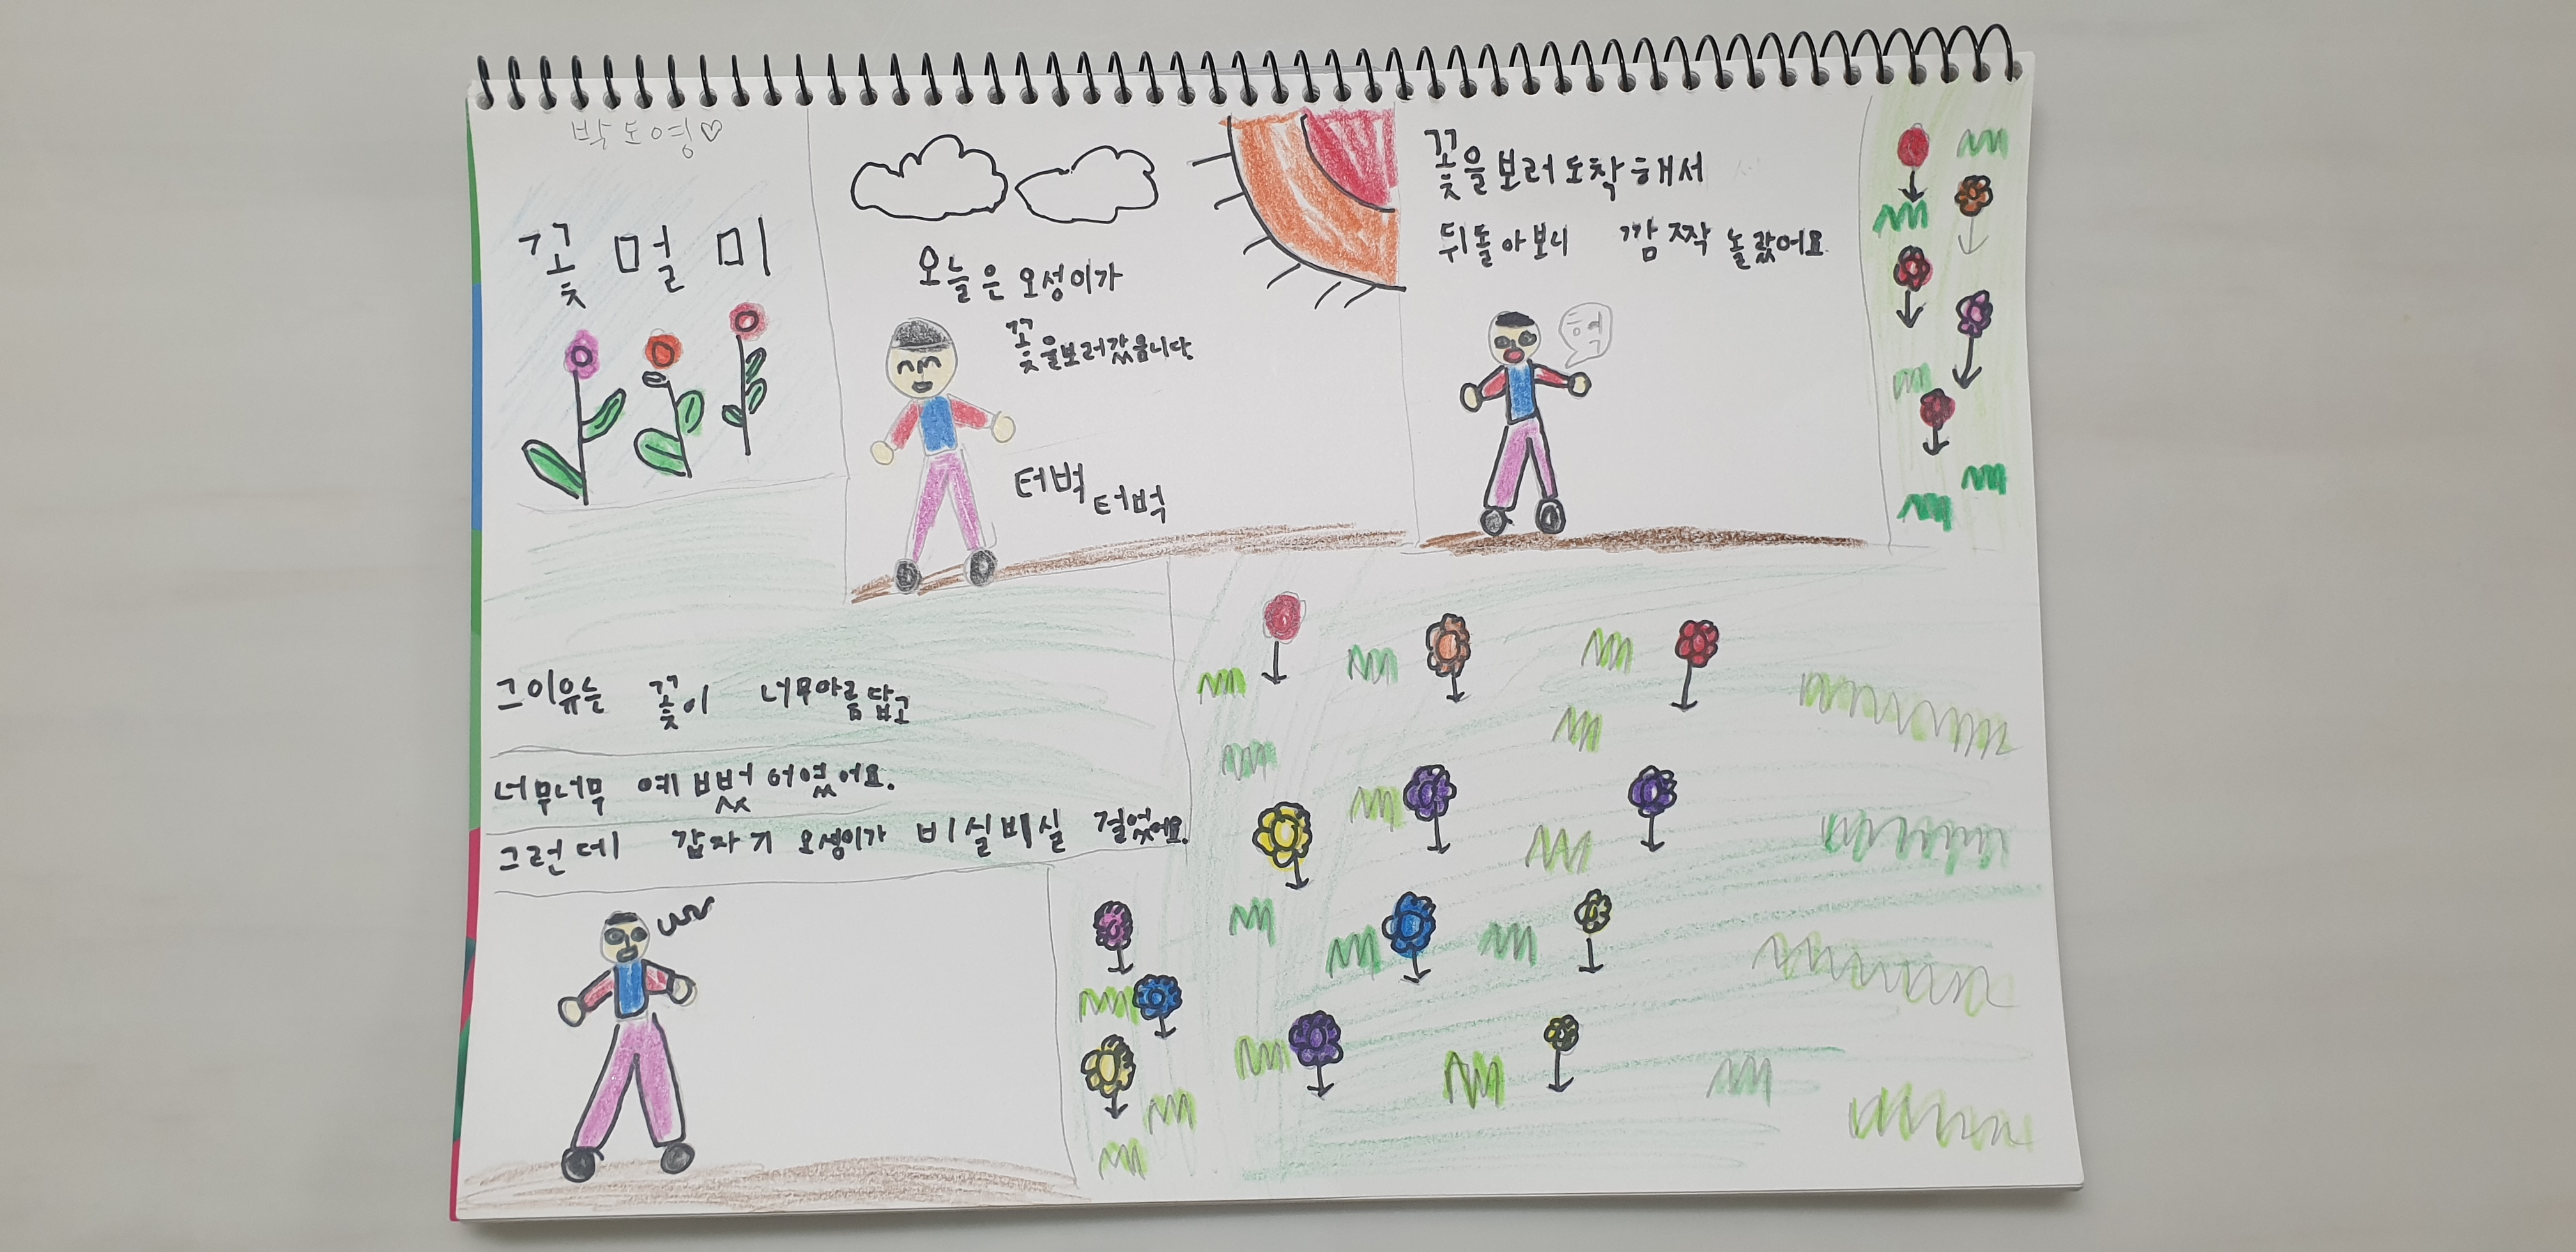 박도영♡
꽃 멀 미
오늘은 오성이가
꽃을보러갔읍니다
터벅
터벅
꽃을보러 도착해서
뒤돌아보니 깜짝 놀랐어요.
그이유는 꽃이 너무아름답고
너무너무 예뻤어였어요.
그런데 갑자기 오성이가 비실비실 걸었어요.